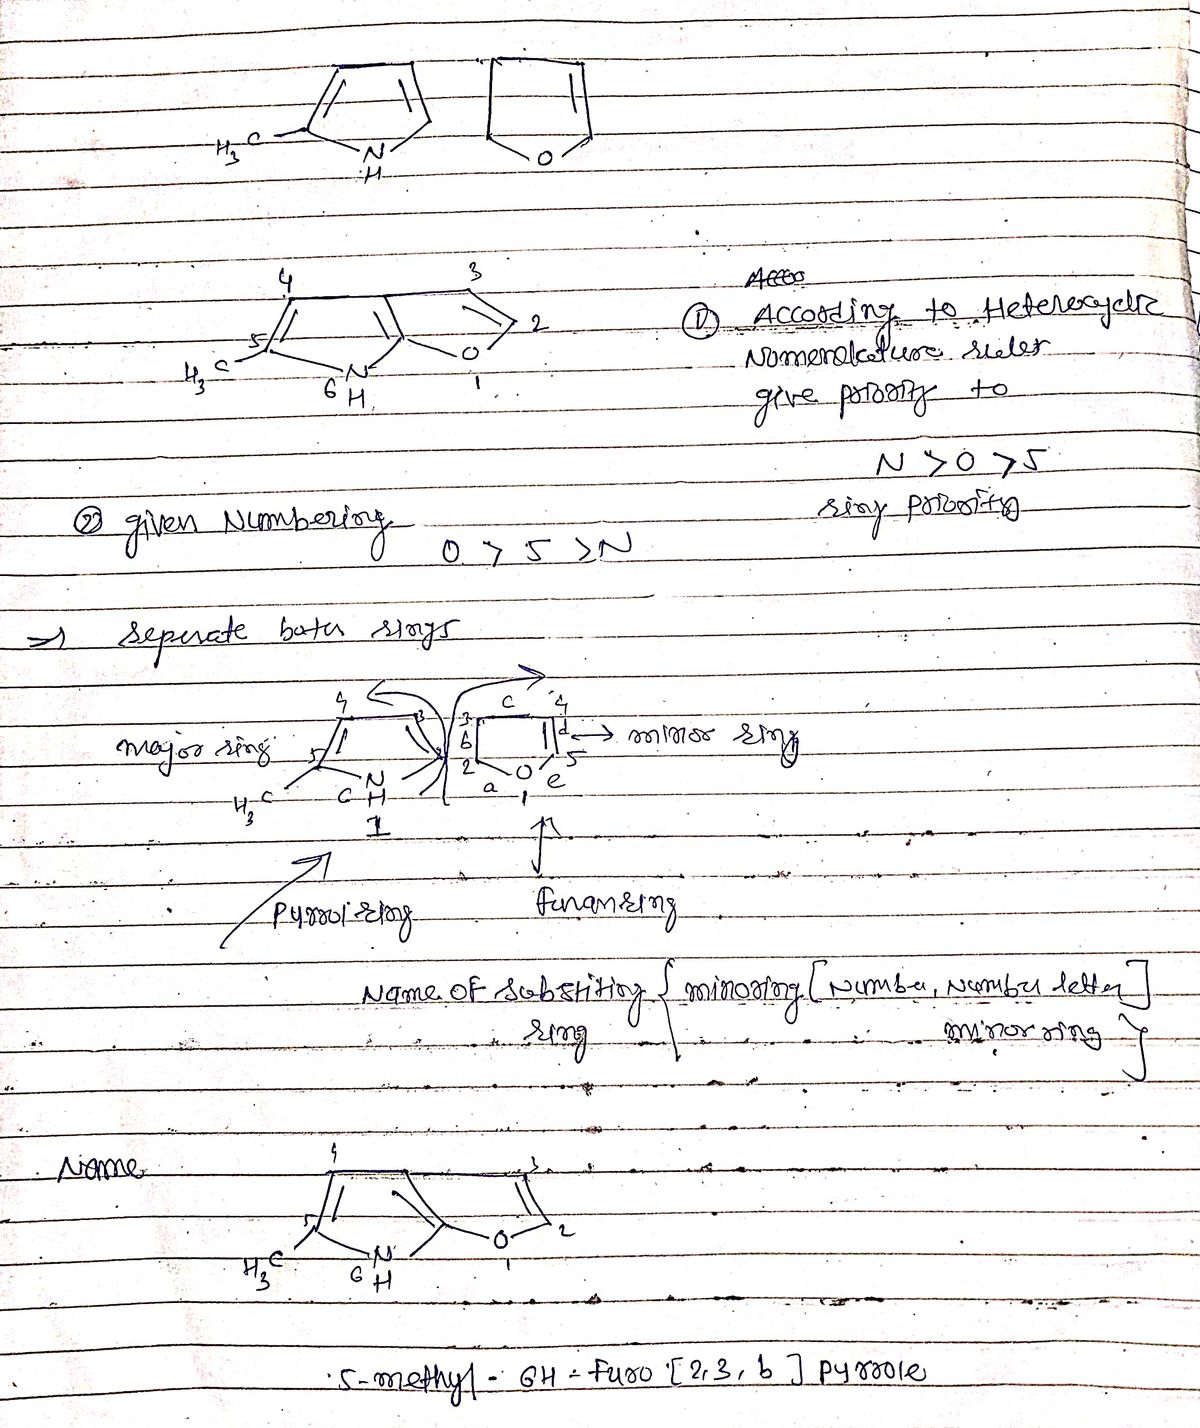 H3C
N
H
O
4
3
5
2
H3C
6
N
H
O
1
① According to Heterocyclic
Nomenclature rules
give priority to
N > O > S
ring priority
② given Numbering
O > S > N
→ Seperate both rings
major ring
4
3
5
H3C
N
H
1
3
c
4
b
d
2
a
O
e
5
1
→ minor ring
Pyrrol ring
furan ring
Name of substiting { minoring [ Number, Number letter ]
ring
minor ring }
Name
4
3
5
2
H3C
6
N
H
O
1
5-methyl - 6H - Furo [2,3, b] pyrrole